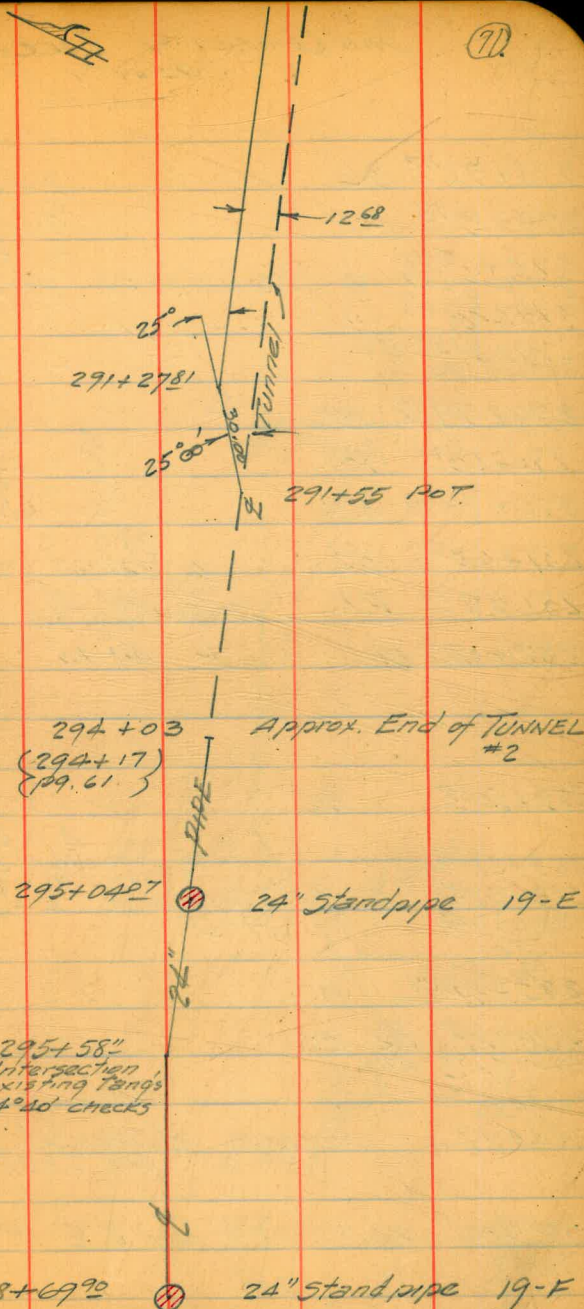 71
12 68
25°
291+27 81
Tunnel
30.00
25°00'
291+55 POT.
294+03 Approx. End of TUNNEL
#2
{294+17}
{pg. 61}
PIPE
295+04 07 24" Standpipe 19-E
24"
295+58 11
Intersection
existing Tang's
4°40' checks
8+69 90 24" Standpipe 19-F